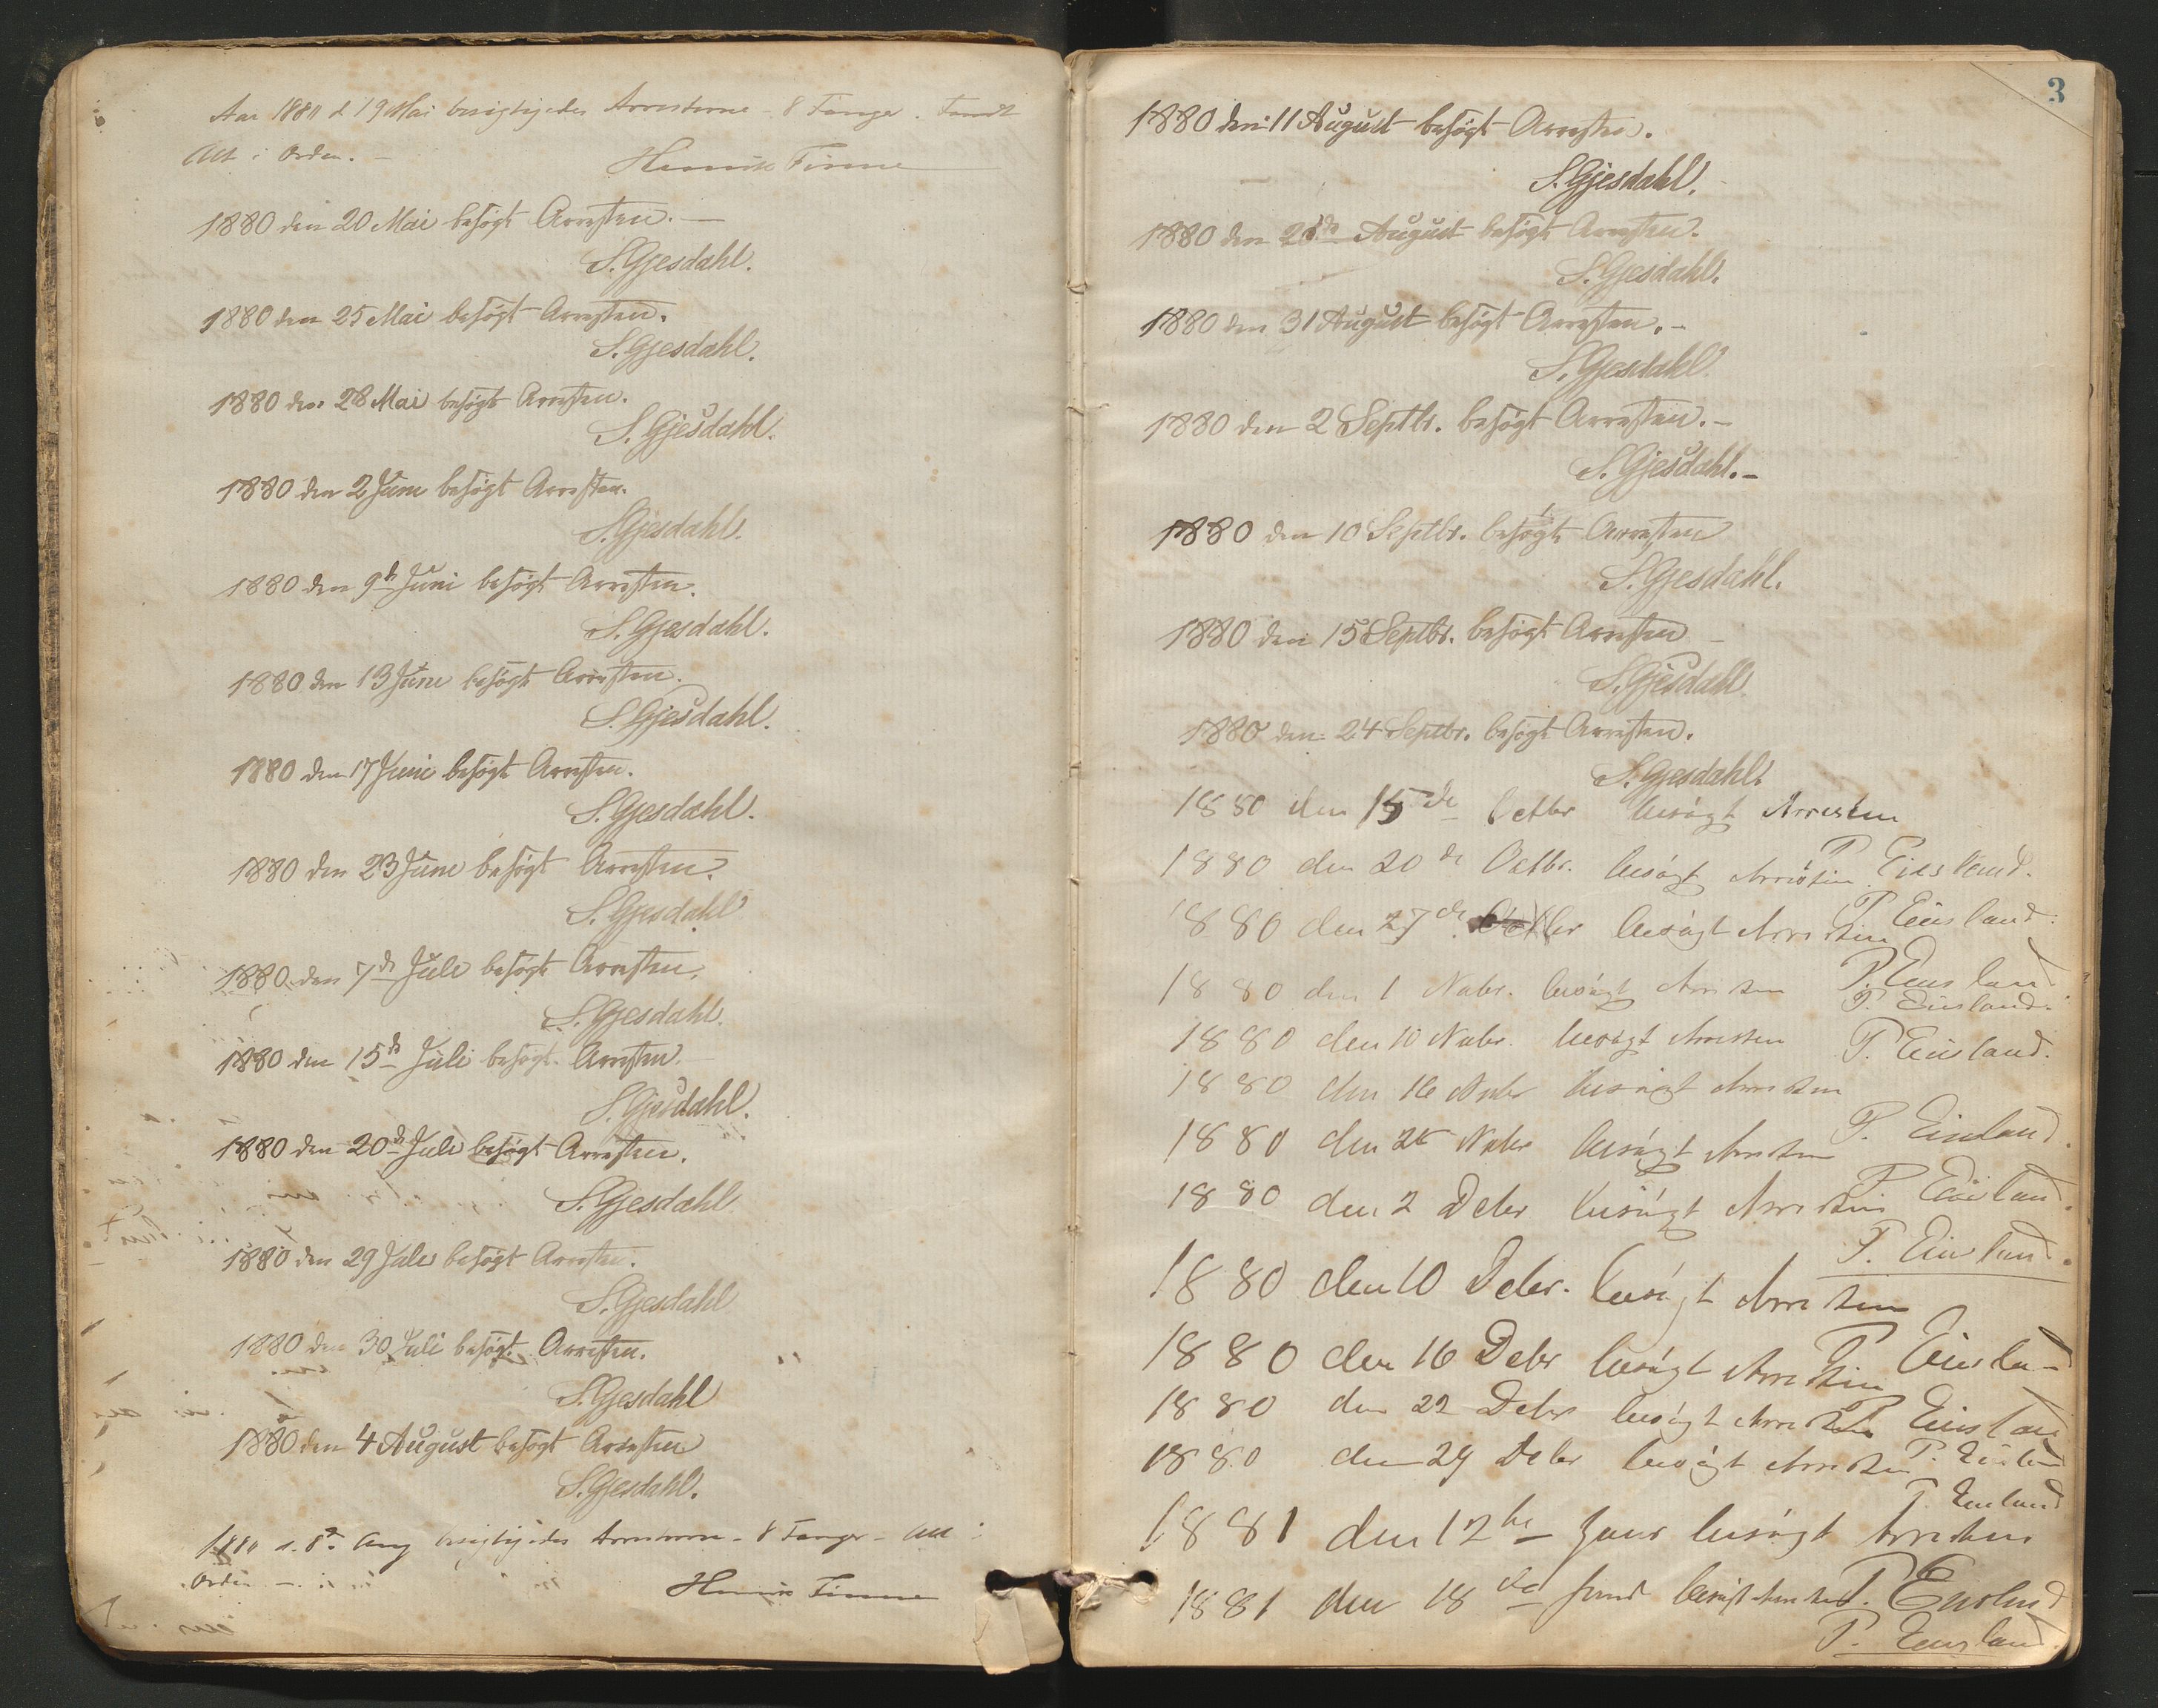 Aar 1880 d 19 Mai besigtigedes Arresterne - 8 Fanger. Fandt
Alt i Orden. -
Henrik Finne
1880 den 20 Mai besøgt Arresten. -
S. Gjesdahl.
1880 den 25 Mai besøgt Arresten.
S. Gjesdahl.
1880 den 28 Mai besøgt Arresten.
S. Gjesdahl.
1880 den 2 Juni besøgt Arresten.
S. Gjesdahl.
1880 den 9de Juni besøgt Arresten.
S. Gjesdahl.
1880 den 13 Juni besøgt Arresten.
S. Gjesdahl.
1880 den 17 Juni besøgt Arresten.
S. Gjesdahl.
1880 den 23 Juni besøgt Arresten.
S. Gjesdahl
1880 den 7de Juli besøgt Arresten.
S. Gjesdahl.
1880 den 15de Juli besøgt Arresten.
S. Gjesdahl.
1880 den 20de Juli besøgt Arresten.
S. Gjesdahl.
1880 den 29 Juli besøgt Arresten.
S. Gjesdahl
1880 den 30 Juli besøgt Arresten.
S. Gjesdahl
1880 den 4 August besøgt Arresten
S. Gjesdahl.
1880 d. 8de Aug besigtigedes Arresterne - 8 Fanger - Alt i
Orden. -
Henrik Finne
3
1880 den 11 August besøgt Arresten.
S. Gjesdahl.
1880 den August besøgt Arresten.
S. Gjesdahl.
1880 den 31 August besøgt Arresten. -
S. Gjesdahl.
1880 den 2 Septbr. besøgt Arresten. -
S. Gjesdahl. -
1880 den 10 Septbr. besøgt Arresten
S. Gjesdahl.
1880 den 15 Septbr. besøgt Arresten -
S. Gjesdahl.
1880 den 24 Septbr. besøgt Arresten.
S. Gjesdahl.
1880 den 15de Octbr besøgt Arresten
P Eiesland.
1880 den 20de Octbr. besøgt Arresten
P. Eiesland.
1880 den 27de Octbr besøgt Arresten
P. Eiesland
1880 den 1 Nobr. besøgt Arresten
P. Eiesland.
1880 den 10 Nobr. besøgt Arresten P. Eiesland.
1880 den 16 Nobr besøgt Arresten
P. Eiesland.
1880 den 25 Nobr besøgt Arresten
P Eiesland.
1880 den 2 Debr besøgt Arresten
P. Eiesland.
1880 den 10 Debr. besøgt Arresten
P. Eiesland
1880 den 16 Debr besøgt Arresten
P Eiesland
1880 den 22 Debr besøgt Arresten
P. Eiesland
1880 den 29 Debr besøgt Arresten
P. Eiesland
1881 den 12te Janr besøgt Arresten
P. Eiesland
1881 den 18de Janr besøgt Arresten
P. Eiesland.